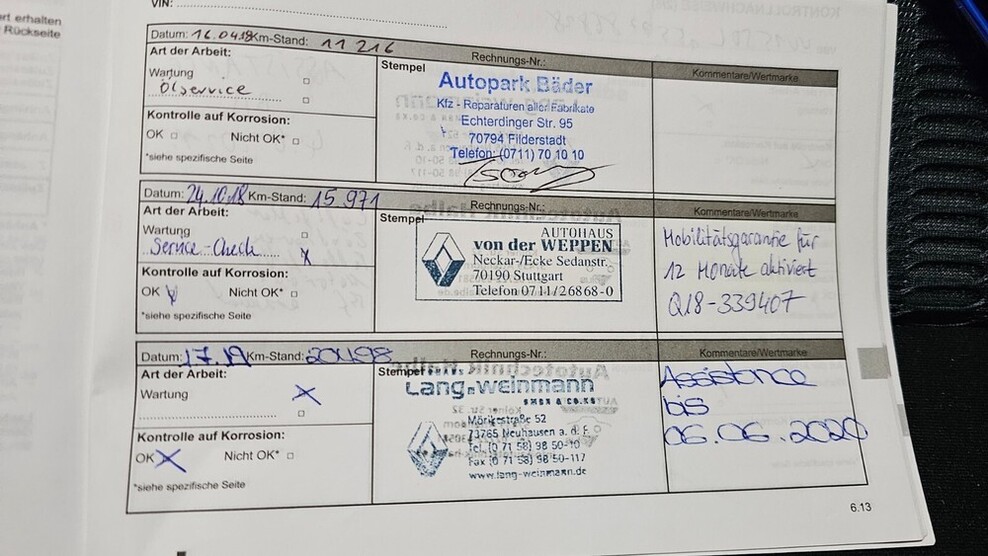 rt erhalten
Rückseite
VIN:
Datum: 16.04.18 Km-Stand: 11 216
Rechnungs-Nr.:
Kommentare/Wertmarke
Art der Arbeit:
Wartung
Ölservice
Kontrolle auf Korrosion:
OK Nicht OK*
*siehe spezifische Seite
Stempel
Autopark Bäder
Kfz - Reparaturen aller Fabrikate
Echterdinger Str. 95
70794 Filderstadt
Telefon: (0711) 70 10 10
Datum: 24.10.18 Km-Stand: 15 971
Rechnungs-Nr.:
Kommentare/Wertmarke
Art der Arbeit:
Wartung
Service-Check x
Kontrolle auf Korrosion:
OK Nicht OK*
*siehe spezifische Seite
Stempel
AUTOHAUS
von der WEPPEN
Neckar-/Ecke Sedanstr.
70190 Stuttgart
Telefon 0711/26868-0
Mobilitätsgarantie für
12 Monate aktiviert
Q18-339407
Datum: 17.19 Km-Stand: 20498
Rechnungs-Nr.:
Kommentare/Wertmarke
Art der Arbeit:
Wartung x
Kontrolle auf Korrosion:
OK x Nicht OK*
*siehe spezifische Seite
Stempel
Lang-weinmann
GMBH & CO. KG
Mörikestraße 52
73765 Neuhausen a. d. F.
Tel. (0 71 58) 98 50-10
Fax (0 71 58) 98 50-117
www.lang-weinmann.de
Assistance
bis
06.06.2020
6.13